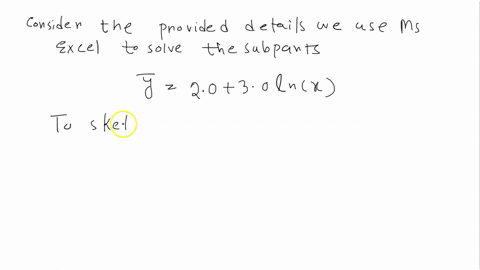 Consider the provided details we use Ms
Excel to solve the subpants
ȳ = 2.0+3.0 ln(x)
To sket